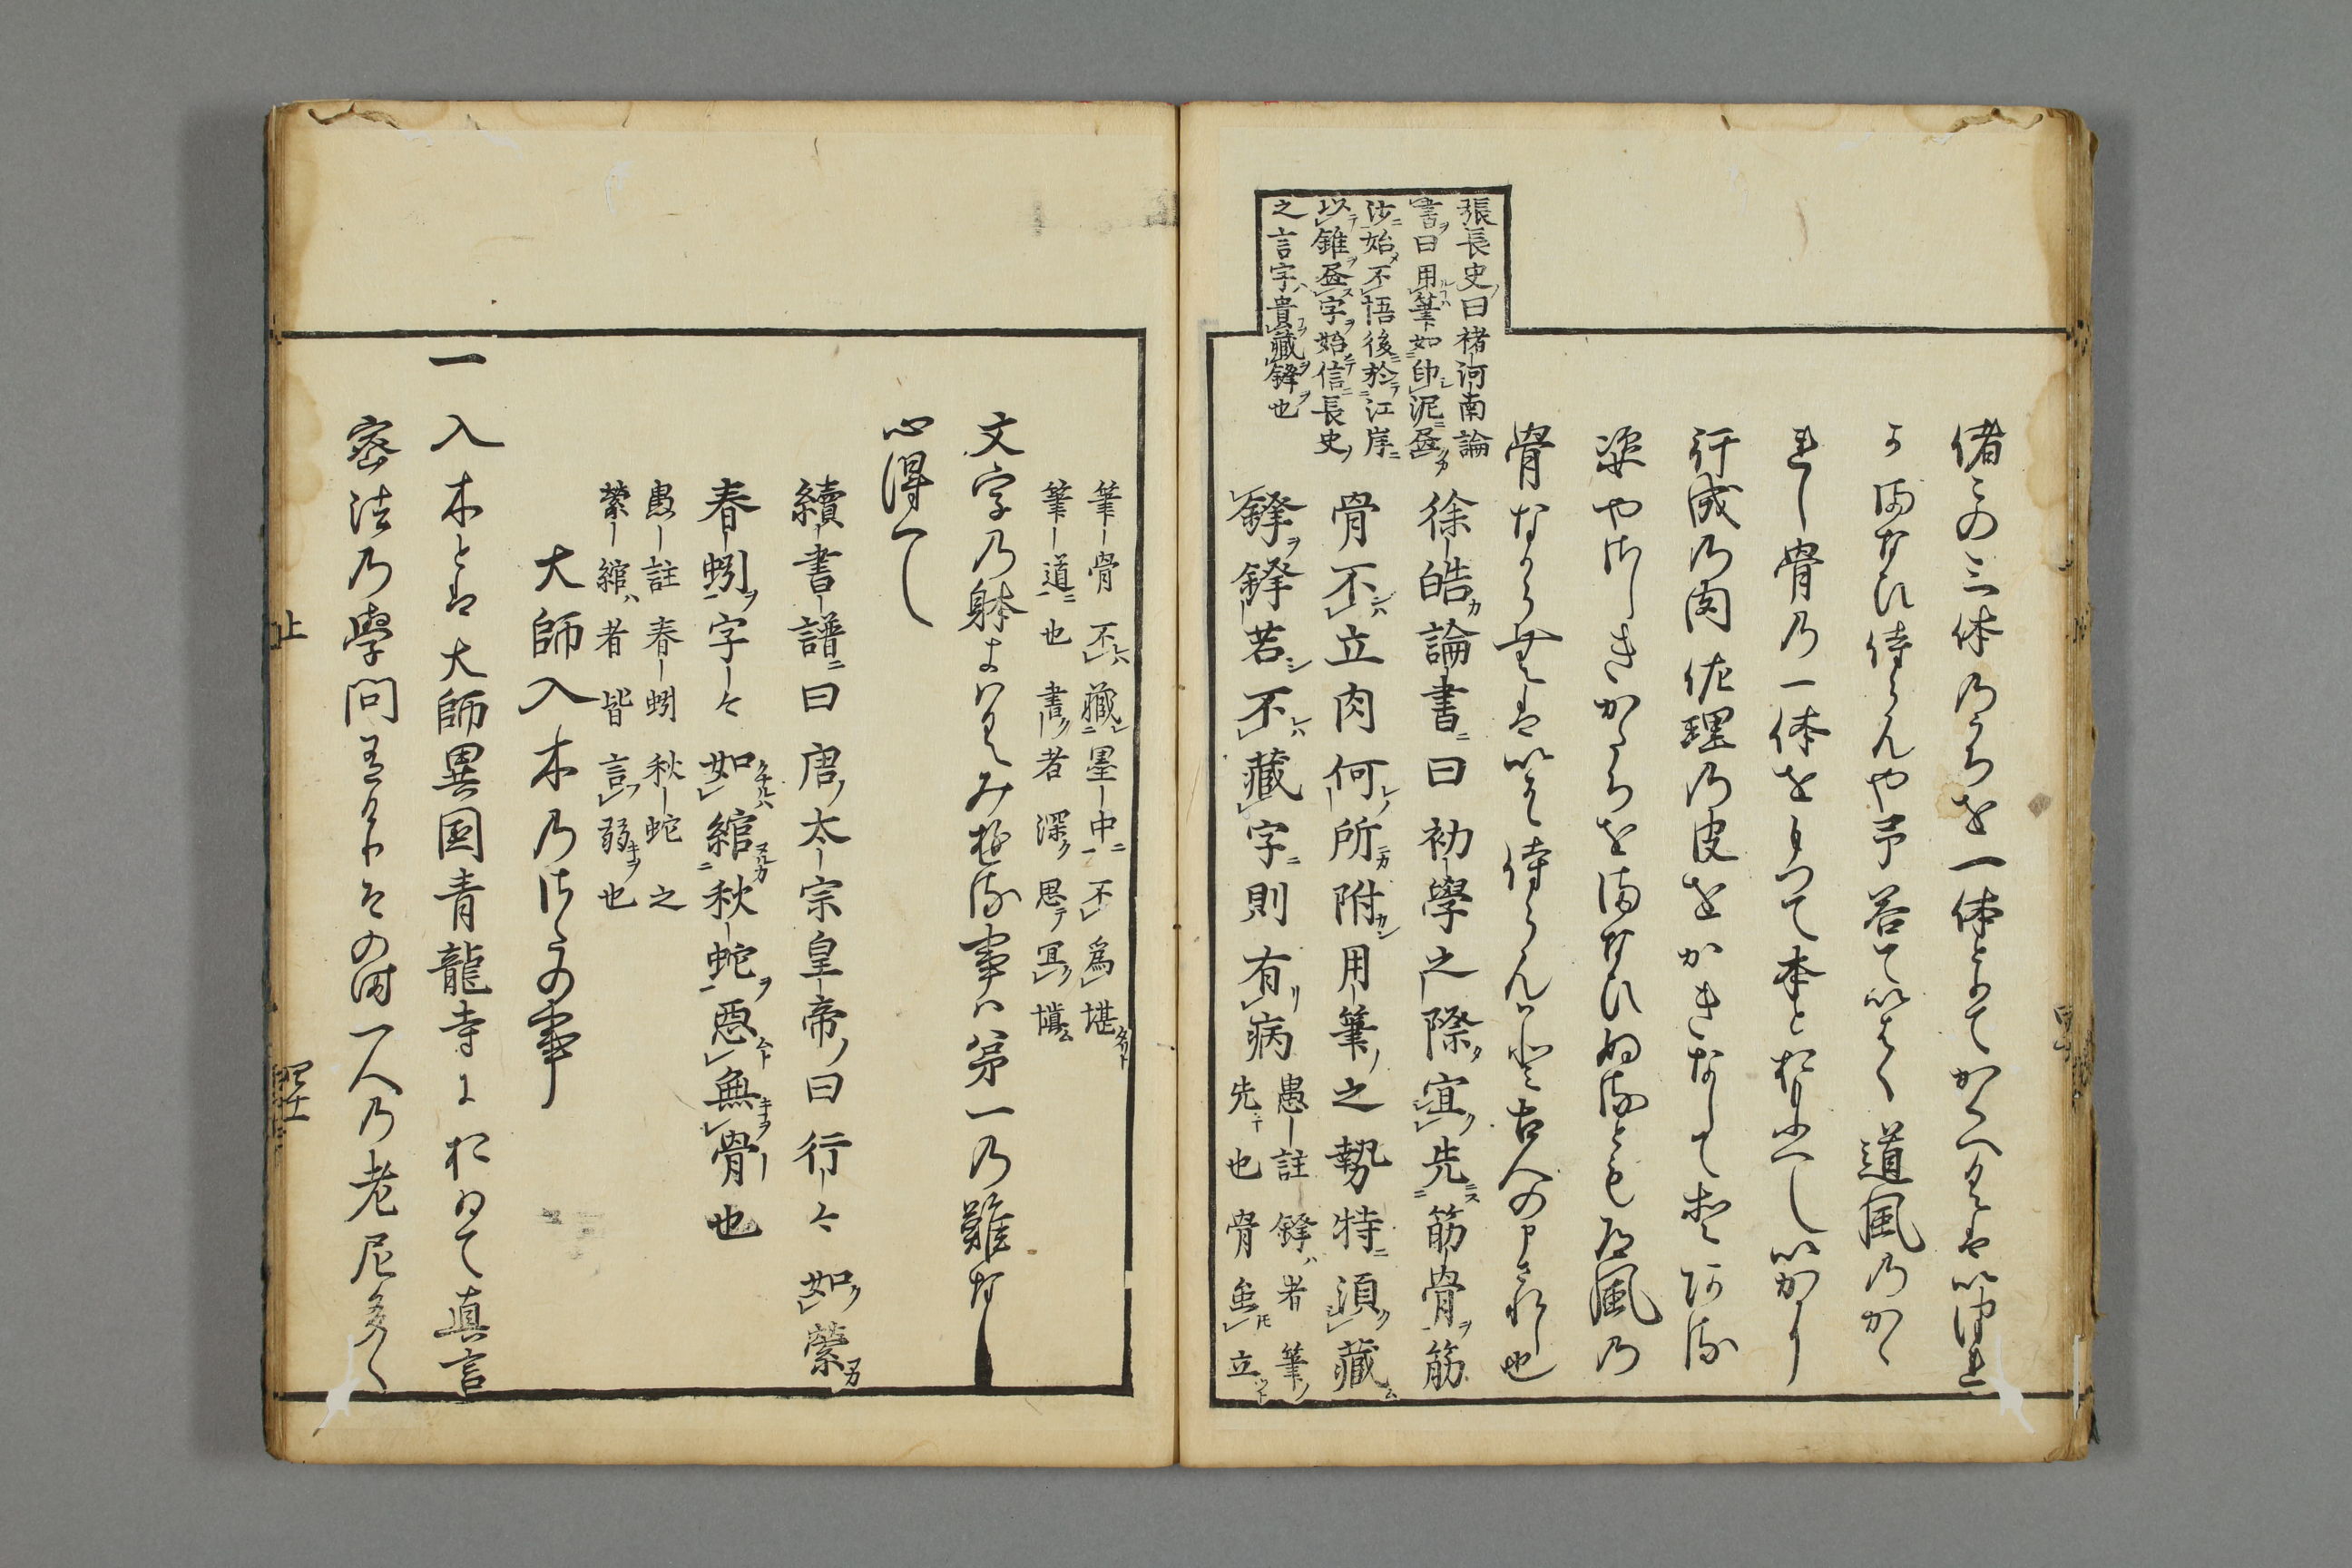 張長史曰褚河南論
書曰用筆如印泥㽵
沙始不悟後於江岸
以錐㽵字始信長史
之言字貴藏鋒也
偖この三体のうちを一体とりてかへりては
うしなひ侍らんや予答ていはく道風のかく
骨の一体をもつて本とおもふへしいかり
行成の肉佐理の皮をかきなして
姿やさしきかたちをうしなひぬるとも道風の
骨なから無ては侍らんと古人の申され也
徐皓論書曰初學之際宜先筋骨筋
骨不立肉何所附用筆之勢特須藏
鋒鋒若不藏字則有病
愚註鋒者筆
先也骨虽立
筆骨不藏墨中不爲堪
筆道也書者深思冝愼
文字の躰よはくみゆる事は第一の難なり
心得へし
續書譜曰唐太宗皇帝曰行〻如縈
春蚓字〻如綰秋蛇惡無骨也
愚註春蚓秋蛇之
縈綰者皆言弱也
大師入木のほうの事
一入木とは大師異国青龍寺におゐて真言
密法の學問その内一人の老尼
上